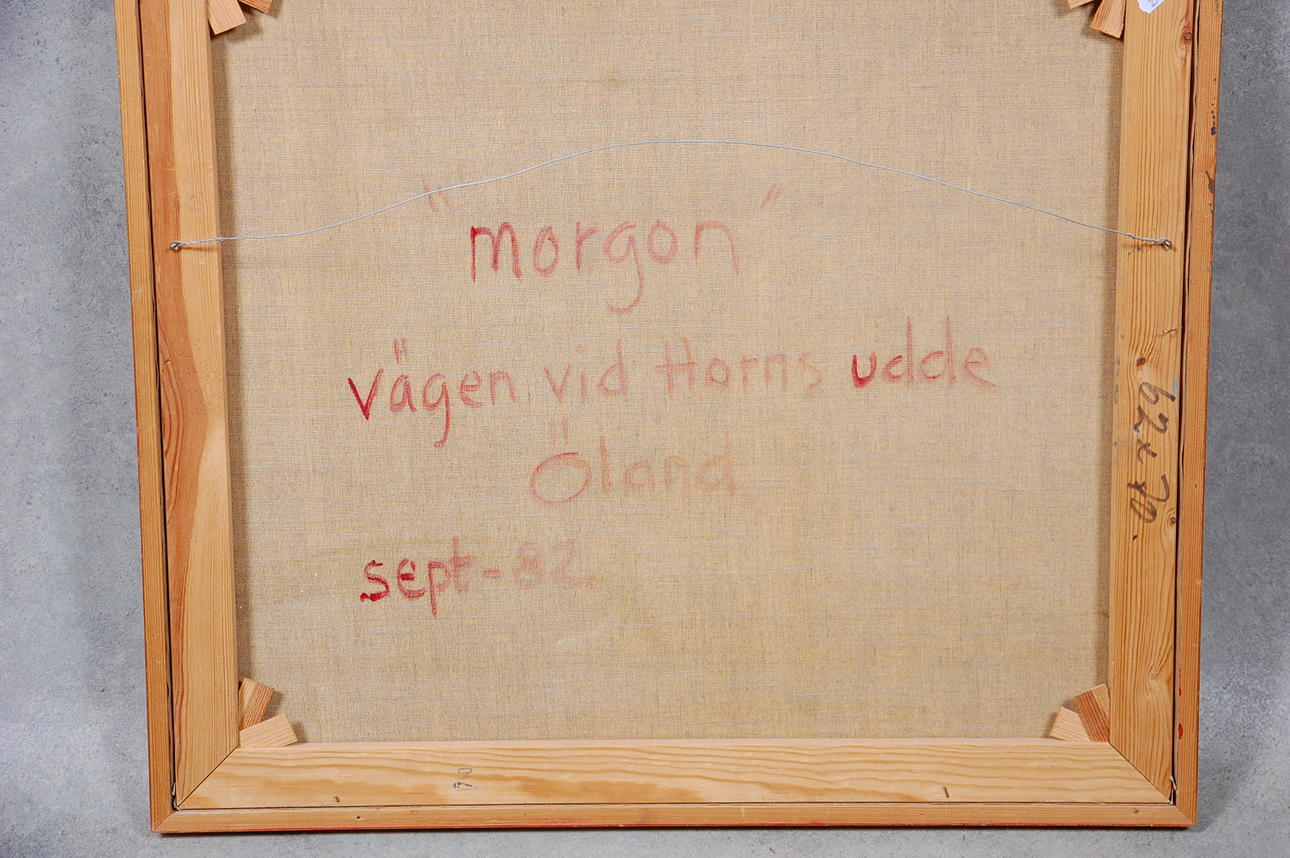 "morgon"
vägen vid Horns udde
Öland
sept-82.
62 x 70.
70